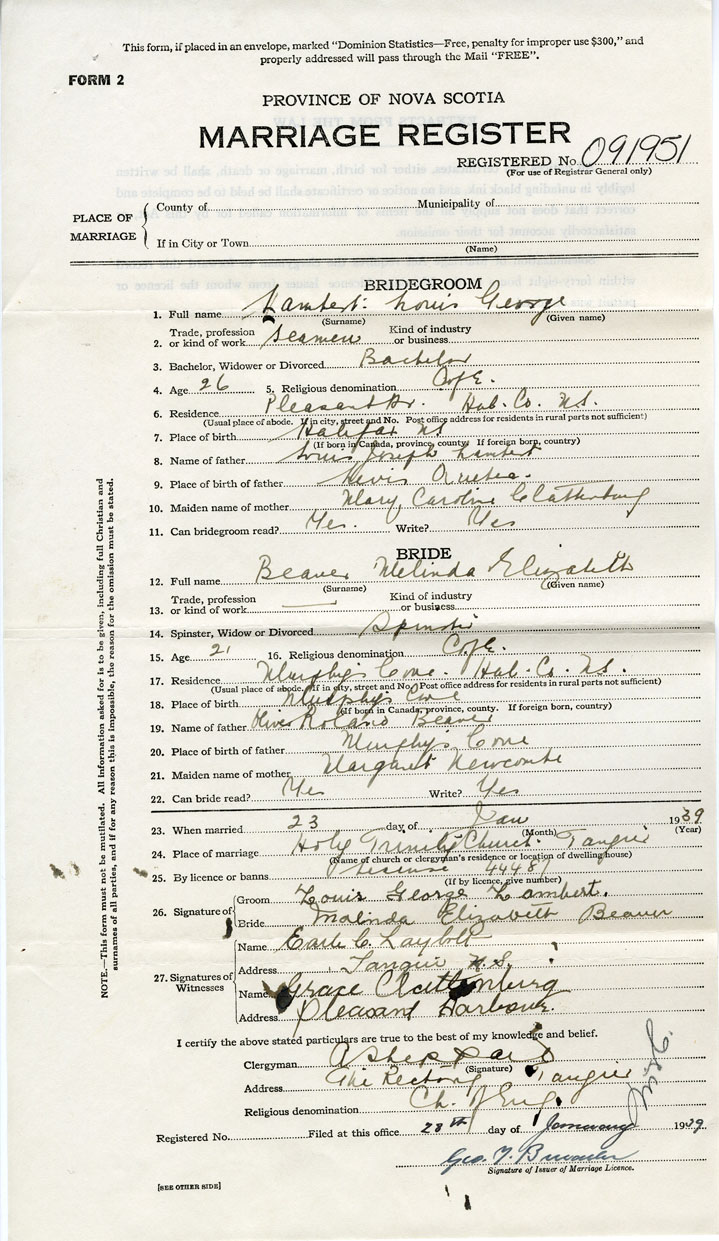 This form, if placed in an envelope, marked "Dominion Statistics—Free, penalty for improper use $300," and
properly addressed will pass through the Mail "FREE".
FORM 2
PROVINCE OF NOVA SCOTIA
MARRIAGE REGISTER
REGISTERED No. 091951
(For use of Registrar General only)
PLACE OF MARRIAGE
County of Municipality of
If in City or Town
(Name)
BRIDEGROOM
1. Full name Lambert: Louis George
(Surname) (Given name)
2. Trade, profession or kind of work Seamen Kind of industry or business
3. Bachelor, Widower or Divorced Bachelor
4. Age 26 5. Religious denomination C of E.
6. Residence Pleasant Hr. Hal. Co. N.S.
(Usual place of abode. If in city, street and No. Post office address for residents in rural parts not sufficient)
7. Place of birth Halifax NS
(If born in Canada, province, county. If foreign born, country)
8. Name of father Louis Joseph Lambert
9. Place of birth of father Levis Quebec.
10. Maiden name of mother Mary Caroline Clattenburg
11. Can bridegroom read? Yes. Write? Yes
BRIDE
12. Full name Beaver Melinda Elizabeth
(Surname) (Given name)
13. Trade, profession or kind of work — Kind of industry or business
14. Spinster, Widow or Divorced Spinster
15. Age 21 16. Religious denomination C of E.
17. Residence Murphy's Cove. Hal. Co. N.S.
(Usual place of abode. If in city, street and No. Post office address for residents in rural parts not sufficient)
18. Place of birth Murphy's Cove
(If born in Canada, province, county. If foreign born, country)
19. Name of father Oliver Roland Beaver
20. Place of birth of father Murphy's Cove
21. Maiden name of mother Margaret Newcombe
22. Can bride read? Yes Write? Yes
23. When married 23 day of Jan 1939
(Month) (Year)
24. Place of marriage Holy Trinity Church. Tangier
(Name of church or clergyman's residence or location of dwelling house)
25. By licence or banns License 44487
(If by licence, give number)
26. Signature of
Groom Louis George Lambert.
Bride Malinda Elizabeth Beaver
27. Signatures of Witnesses
Name Earle C Laybolt
Address Tangier N.S.
Name Grace Clattenburg
Address Pleasant Harbour.
I certify the above stated particulars are true to the best of my knowledge and belief.
Clergyman A Sheppard
(Signature)
Address The Rectory Tangier
Religious denomination Ch. of Eng.
Registered No. Filed at this office 28th day of January 1939
Geo. T.
Signature of Issuer of Marriage Licence.
[SEE OTHER SIDE]
NOTE.—This form must not be mutilated. All information asked for is to be given, including full Christian and
surnames of all parties, and if for any reason this is impossible, the reason for the omission must be stated.